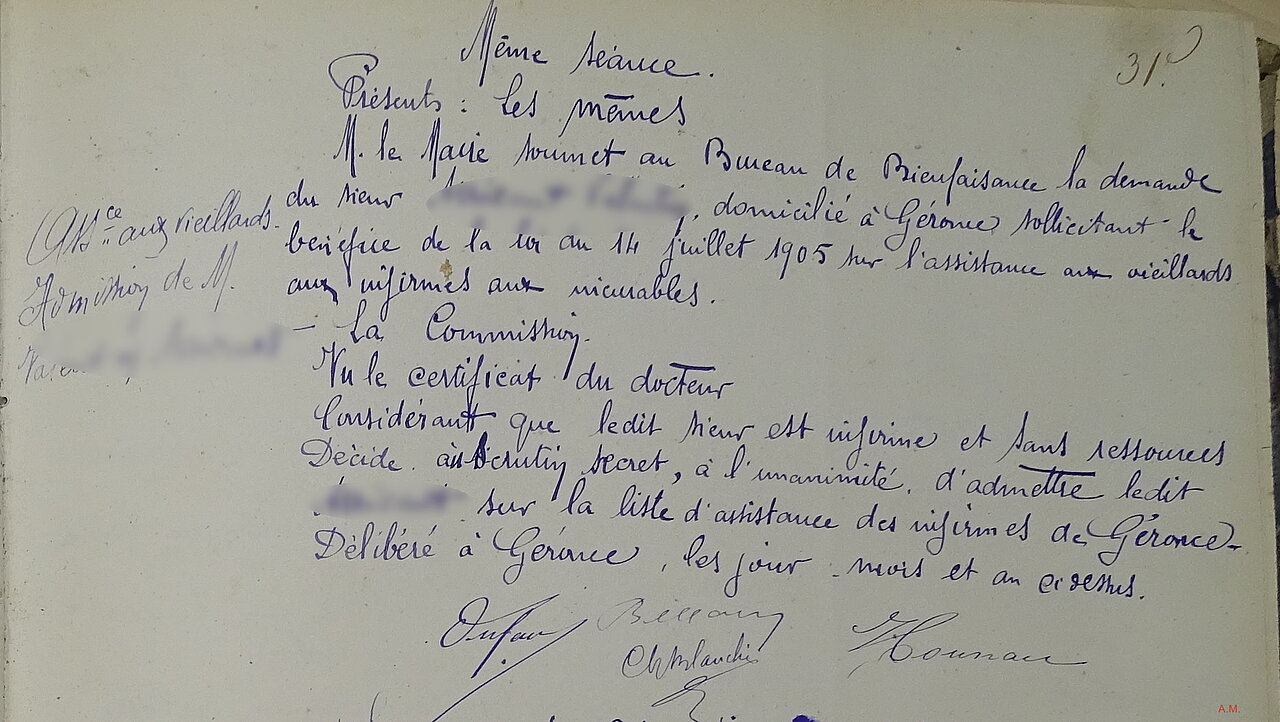 31.
Même séance.
Présents : Les mêmes
M. le Maire soumet au Bureau de Bienfaisance la demande
du sieur , domicilié à Géronce sollicitant le
bénéfice de la loi du 14 juillet 1905 sur l'assistance aux vieillards
aux infirmes aux incurables.
Assce aux vieillards.
Admission de M.
- La Commission.
Vu le certificat du docteur
Considérant que ledit sieur est infirme et sans ressources
Décide au scrutin secret, à l'unanimité, d'admettre ledit
sur la liste d'assistance des infirmes de Géronce-
Délibéré à Géronce, les jour mois et an ci dessus.
A.M.